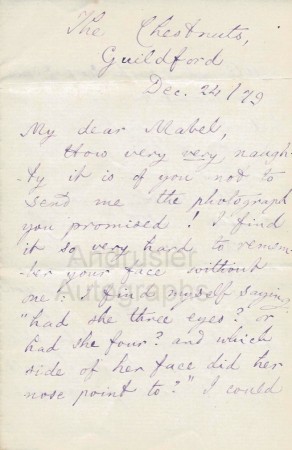 The Chestnuts,
Guildford
Dec. 24/79
My dear Mabel,
How very very naugh-
-ty it is of you not to
send me the photograph
you promised! I find
it so very hard to remem-
-ber your face without
one! I find myself saying
"had she three eyes? or
had she four? and which
side of her face did her
nose point to?" I could
Andrusier
Autographs